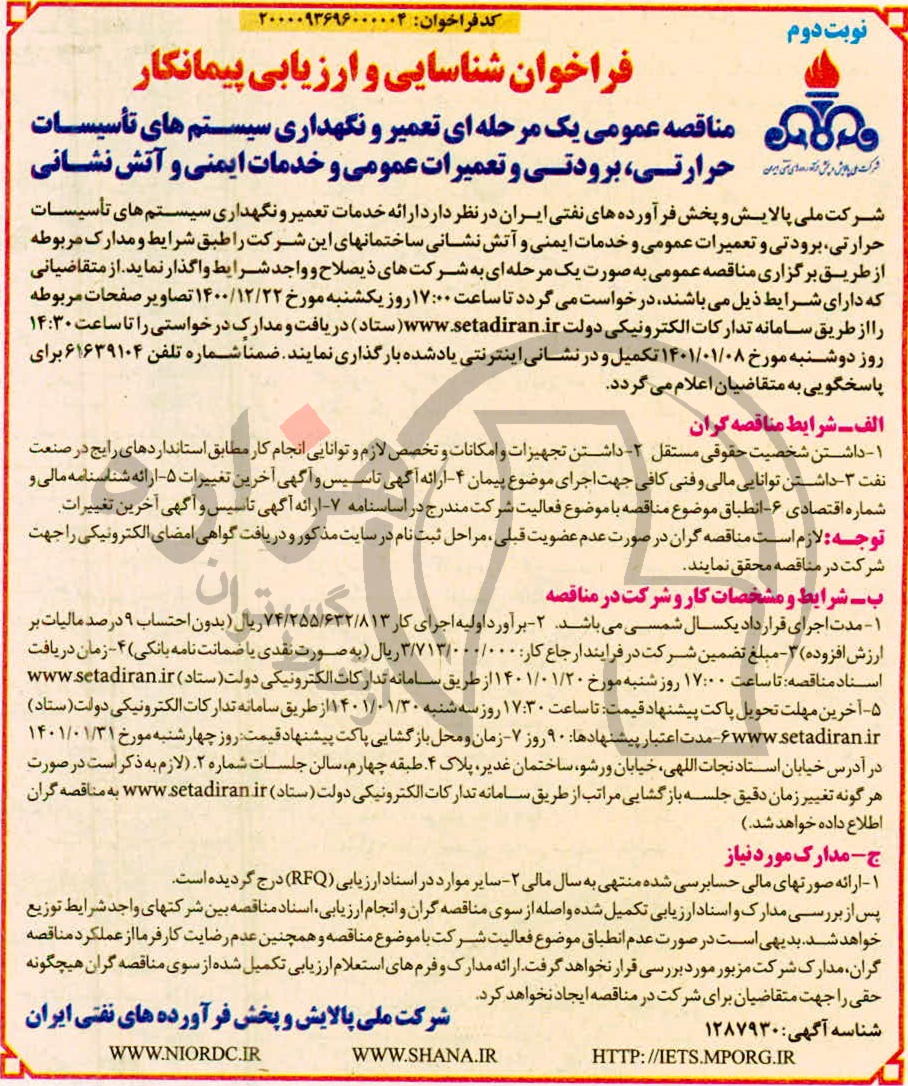 کد فراخوان: ۲۰۰۰۰۹۳۶۹۶۰۰۰۰۰۴
نوبت دوم
فراخوان شناسایی و ارزیابی پیمانکار
مناقصه عمومی یک مرحله ای تعمیر و نگهداری سیستم های تأسیسات
حرارتی، برودتی و تعمیرات عمومی و خدمات ایمنی و آتش نشانی
شرکت ملی پالایش و پخش فرآورده های نفتی ایران
شرکت ملی پالایش و پخش فرآورده های نفتی ایران در نظر دارد ارائه خدمات تعمیر و نگهداری سیستم های تأسیسات
حرارتی، برودتی و تعمیرات عمومی و خدمات ایمنی و آتش نشانی ساختمانهای این شرکت را طبق شرایط و مدارک مربوطه
از طریق برگزاری مناقصه عمومی به صورت یک مرحله ای به شرکت های ذیصلاح و واجد شرایط واگذار نماید. از متقاضیانی
که دارای شرایط ذیل می باشند، درخواست می گردد تا ساعت ۱۷:۰۰ روز یکشنبه مورخ ۱۴۰۰/۱۲/۲۲ تصاویر صفحات مربوطه
را از طریق سامانه تدارکات الکترونیکی دولت www.setadiran.ir (ستاد) دریافت و مدارک درخواستی را تا ساعت ۱۴:۳۰
روز دوشنبه مورخ ۱۴۰۱/۰۱/۰۸ تکمیل و در نشانی اینترنتی یادشده بارگذاری نمایند. ضمناً شماره تلفن ۶۱۶۳۹۱۰۴ برای
پاسخگویی به متقاضیان اعلام می گردد.
الف ـ شرایط مناقصه گران
۱- داشتن شخصیت حقوقی مستقل ۲- داشتن تجهیزات و امکانات و تخصص لازم و توانایی انجام کار مطابق استانداردهای رایج در صنعت
نفت ۳- داشتن توانایی مالی و فنی کافی جهت اجرای موضوع پیمان ۴- ارائه آگهی تاسیس و آگهی آخرین تغییرات ۵- ارائه شناسنامه مالی و
شماره اقتصادی ۶- انطباق موضوع مناقصه با موضوع فعالیت شرکت مندرج در اساسنامه ۷- ارائه آگهی تاسیس و آگهی آخرین تغییرات.
توجه: لازم است مناقصه گران در صورت عدم عضویت قبلی، مراحل ثبت نام در سایت مذکور و دریافت گواهی امضای الکترونیکی را جهت
شرکت در مناقصه محقق نمایند.
ب ـ شرایط و مشخصات کار و شرکت در مناقصه
۱- مدت اجرای قرارداد یکسال شمسی می باشد. ۲- برآورد اولیه اجرای کار ۷۴/۲۵۵/۶۳۲/۸۱۳ ریال (بدون احتساب ۹ درصد مالیات بر
ارزش افزوده) ۳- مبلغ تضمین شرکت در فرایند ارجاع کار: ۳/۷۱۳/۰۰۰/۰۰۰ ریال (به صورت نقدی یا ضمانت نامه بانکی) ۴- زمان دریافت
اسناد مناقصه: تا ساعت ۱۷:۰۰ روز شنبه مورخ ۱۴۰۱/۰۱/۲۰ از طریق سامانه تدارکات الکترونیکی دولت (ستاد) www.setadiran.ir
۵- آخرین مهلت تحویل پاکت پیشنهاد قیمت: تا ساعت ۱۷:۳۰ روز سه شنبه ۱۴۰۱/۰۱/۳۰ از طریق سامانه تدارکات الکترونیکی دولت (ستاد)
www.setadiran.ir ۶- مدت اعتبار پیشنهادها: ۹۰ روز ۷- زمان و محل بازگشایی پاکت پیشنهاد قیمت: روز چهارشنبه مورخ ۱۴۰۱/۰۱/۳۱
در آدرس خیابان استاد نجات اللهی، خیابان ورشو، ساختمان غدیر، پلاک ۴. طبقه چهارم، سالن جلسات شماره ۲. (لازم به ذکر است در صورت
هرگونه تغییر زمان دقیق جلسه بازگشایی مراتب از طریق سامانه تدارکات الکترونیکی دولت (ستاد) www.setadiran.ir به مناقصه گران
اطلاع داده خواهد شد.)
ج - مدارک مورد نیاز
۱- ارائه صورتهای مالی حسابرسی شده منتهی به سال مالی ۲- سایر موارد در اسناد ارزیابی (RFQ) درج گردیده است.
پس از بررسی مدارک و اسناد ارزیابی تکمیل شده واصله از سوی مناقصه گران و انجام ارزیابی، اسناد مناقصه بین شرکتهای واجد شرایط توزیع
خواهد شد. بدیهی است در صورت عدم انطباق موضوع فعالیت شرکت با موضوع مناقصه و همچنین عدم رضایت کارفرما از عملکرد مناقصه
گران، مدارک شرکت مزبور مورد بررسی قرار نخواهد گرفت. ارائه مدارک و فرم های استعلام ارزیابی تکمیل شده از سوی مناقصه گران هیچگونه
حقی را جهت متقاضیان برای شرکت در مناقصه ایجاد نخواهد کرد.
شناسه آگهی: ۱۲۸۷۹۳۰
شرکت ملی پالایش و پخش فرآورده های نفتی ایران
WWW.NIORDC.IR WWW.SHANA.IR HTTP://IETS.MPORG.IR